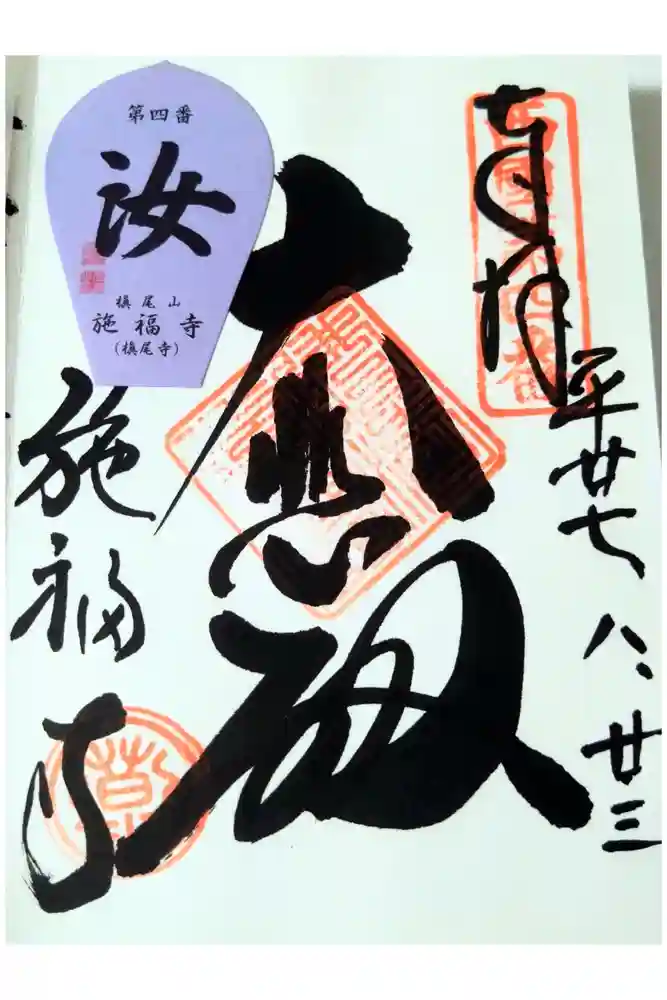 奉拝
西國第四番
平廿七
八、廿三
大悲殿
施福寺
第四番
汝
槇尾山
施福寺
(槇尾寺)